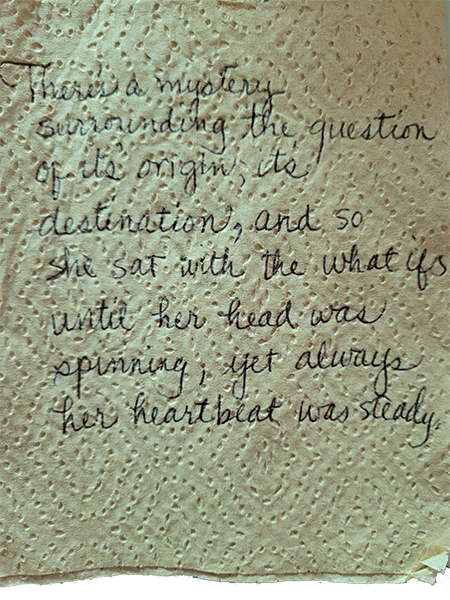 There's a mystery
surrounding the question
of it's origin, its
destination, and so
she sat with the what ifs
until her head was
spinning, yet always
her heartbeat was steady.